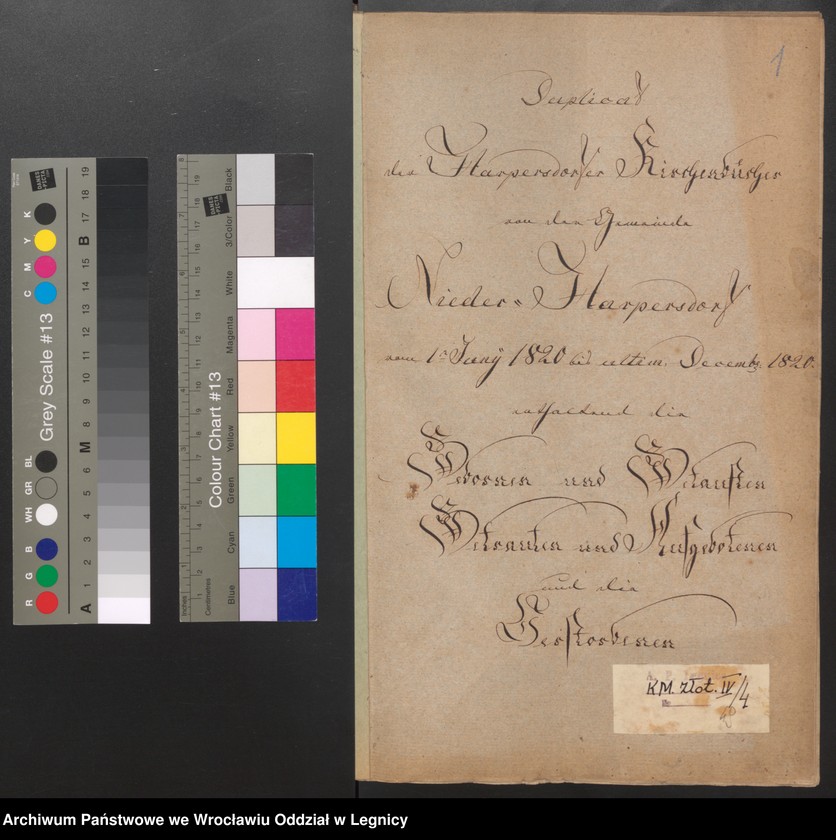 1
Duplicat
der Harpersdorfer Kirchenbücher
von der Gemeinde
Nieder-Harpersdorf
vom 1n Juny 1820 bis ultim. Decembr. 1820.
enthaltend die
Gebornen und Getauften
Getrauten und Aufgebotenen
und die
Verstorbenen
KM. złot. IV/4
Grey Scale #13
R G B WH GR BL C M Y K
A 1 2 3 4 5 6 M 8 9 10 11 12 13 14 15 B 17 18 19
DANES-PICTA
Colour Chart #13
Blue Cyan Green Yellow Red Magenta White 3/Color Black
Inches
Centimetres
DANES-PICTA.COM
Archiwum Państwowe we Wrocławiu Oddział w Legnicy